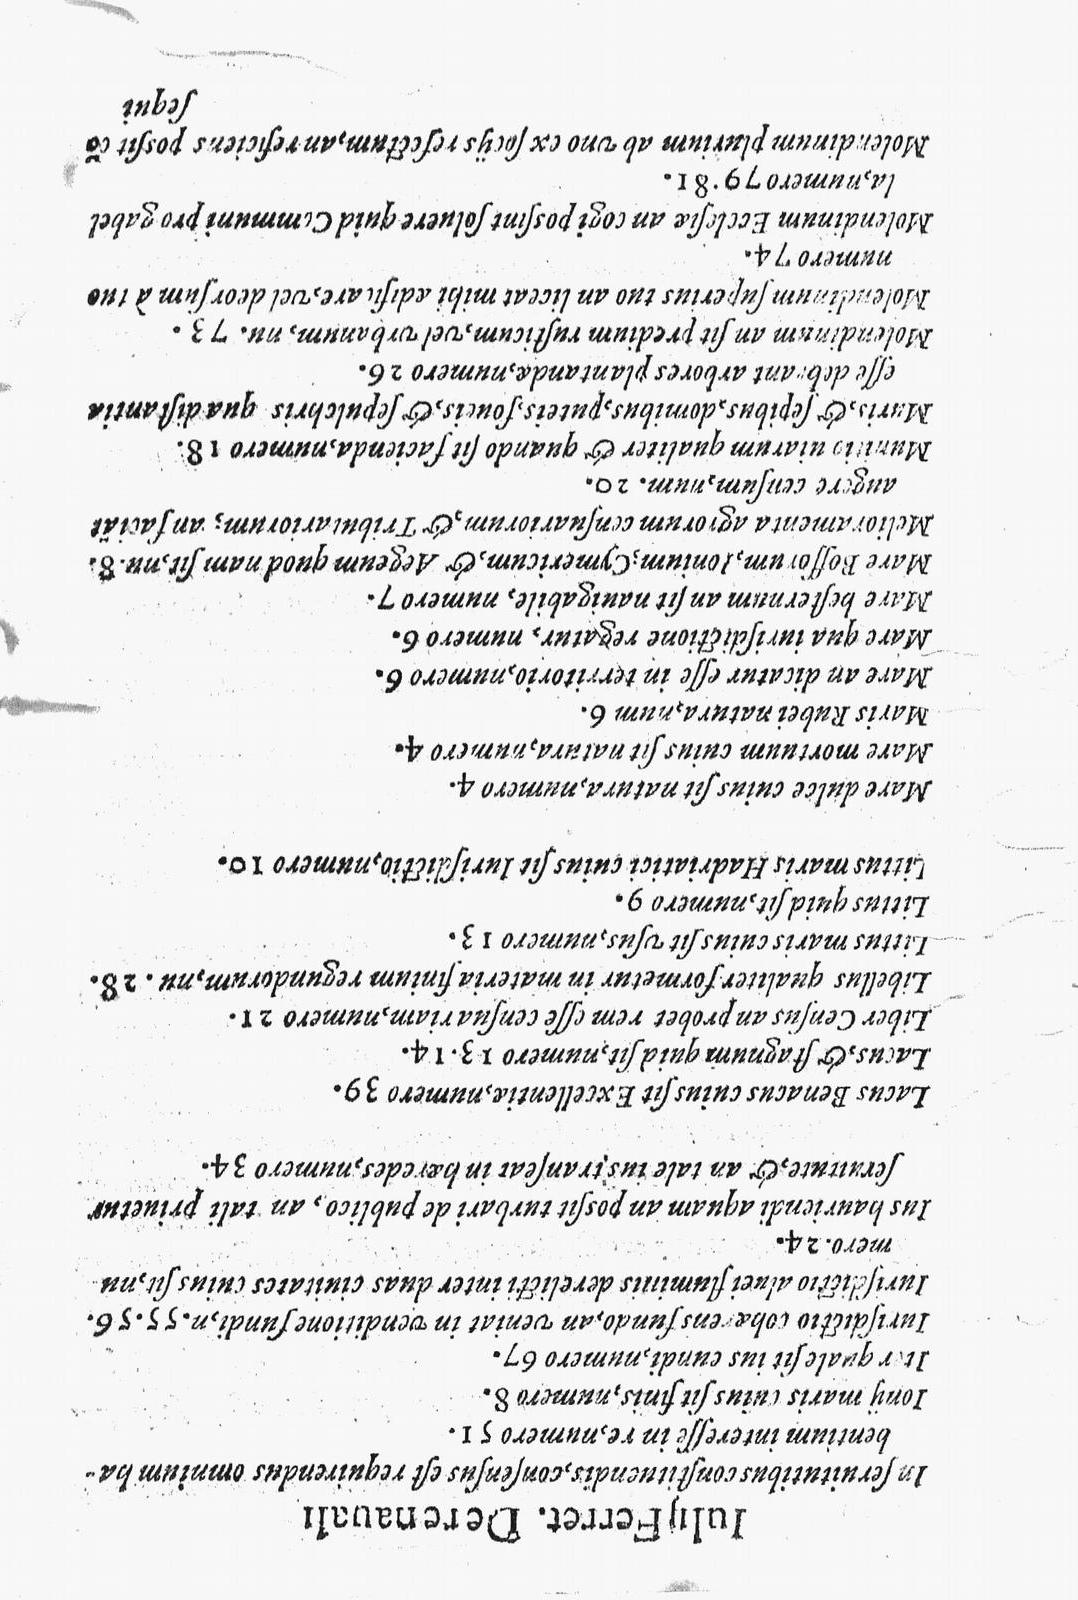 Iulij Ferret. De re nauali
In seruitutibus constituendis, consensus est requirendus omnium ha-
bentium interesse in re, numero 51.
Ionij maris cuius sit finis, numero 8.
Iter quale sit ius eundi, numero 67.
Iurisdictio cohærens fundo, an veniat in venditione fundi, n. 55. 56.
Iurisdictio aluei fluminis derelicti inter duas ciuitates cuius sit, nu
mero. 24.
Ius hauriendi aquam an possit turbari de publico, an tali priuetur
seruitute, & an tale ius transeat in hæredes, numero 34.
Lacus Benacus cuius sit Excellentiæ, numero 39.
Lacus, & stagnum quid sit, numero 13. 14.
Liber Census an probet rem esse censuariam, numero 21.
Libellus qualiter formetur in materia finium regundorum, nu. 28.
Littus maris cuius sit vsus, numero 13.
Littus quid sit, numero 9.
Littus maris Hadriatici cuius sit Iurisdictio, numero 10.
Mare dulce cuius sit natura, numero 4.
Mare mortuum cuius sit natura, numero 4.
Maris Rubei natura, num 6.
Mare an dicatur esse in territorio, numero 6.
Mare qua iurisdictione regatur, numero 6.
Mare hesternum an sit nauigabile, numero 7.
Mare Bosforum, Ionium, Cymericum, & Aegeum quod nam sit, nu. 8.
Melioramenta agrorum censuariorum, & Tributariorum; an faciāt
augere censum, num. 20.
Munitio uiarum qualiter & quando sit facienda, numero 18.
Muris, & sepibus, domibus, puteis, foueis, & sepulchris qua distantia
esse debeant arbores plantandæ, numero 26.
Molendinum an sit predium rusticum, vel vrbanum, nu. 73.
Molendinum superius tuo an liceat mihi ædificare, vel deorsum à tuo
numero 74.
Molendinum Ecclesiæ an cogi possint soluere quid Communi pro gabel
la, numero 79. 81.
Molendinum plurium ab vno ex socijs refectum, an reficiens possit cō
sequi